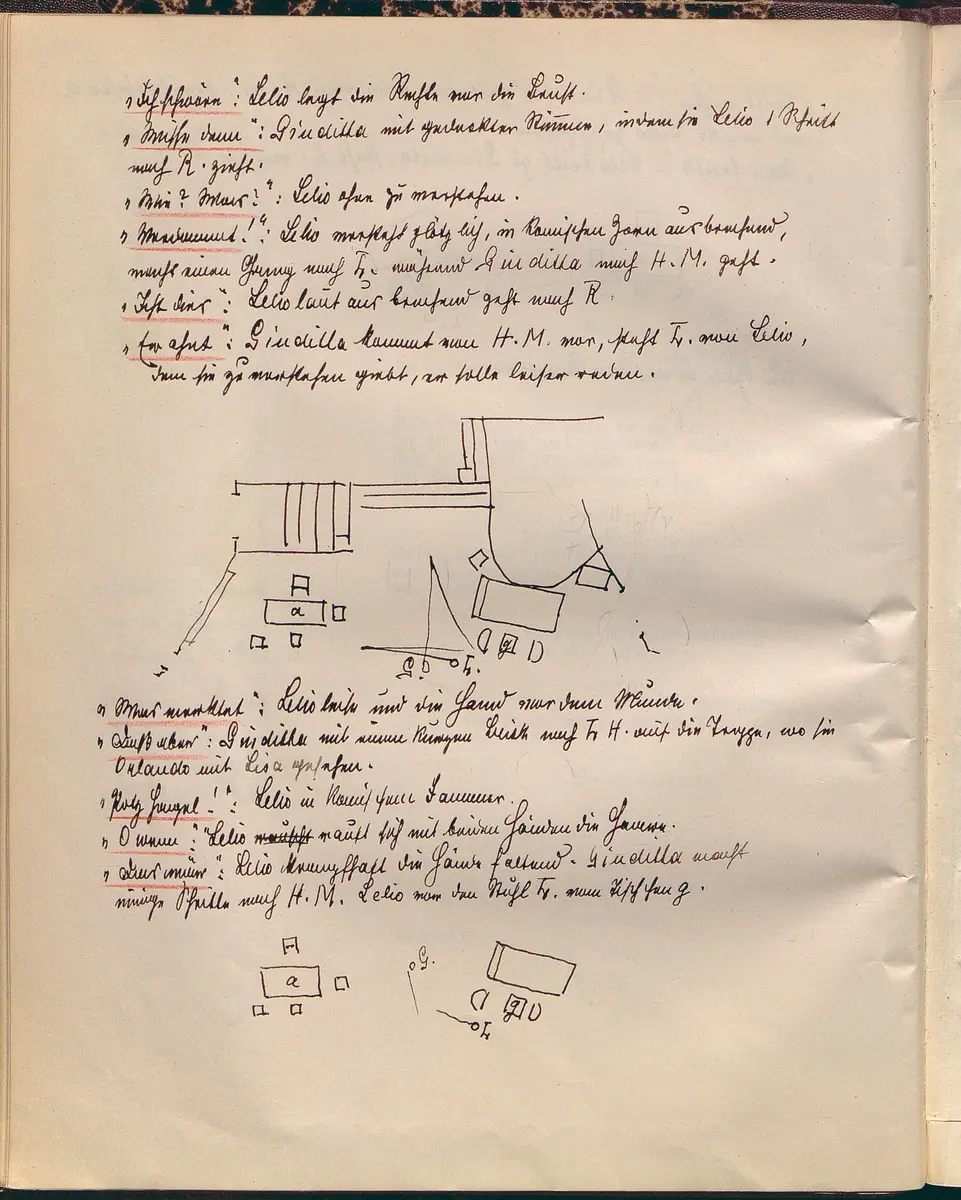 „Ich schwöre“: Lelio legt die Rechte vor die Brust.
„Wisse denn“: Giuditta mit gedeckter Stimme, indem sie Lelio 1 Schritt
nach R. zieht.
„Wie? Was?“: Lelio ohne zu verstehen.
„Verdammt!“: Lelio versteht plötzlich, in komischen Zorn ausbrechend,
macht einen Gang nach L. während Giuditta nach H. M. geht.
„Ist dies“: Lelio laut ausbrechend geht nach R.
„Er ahnt“: Giuditta kommt von H. M. vor, steht L. von Lelio,
dem sie zu verstehen giebt, er solle leiser reden.
a
g
G. L.
„Was merktet“: Lelio leise und die Hand vor dem Munde.
„Daß aber“: Giuditta mit einem kurzen Blick nach L H. auf die Treppe, wo sie
Orlando mit Lisa gesehen.
„Potz Hagel!“: Lelio in komischem Jammer.
„O wenn“: Lelio rauft sich mit beiden Händen die Haare.
Lelio krampfhaft die Hände faltend. Giuditta macht
einige Schritte nach H. M. Lelio vor den Stuhl L. vom Tischchen g.
G.
a
g
L